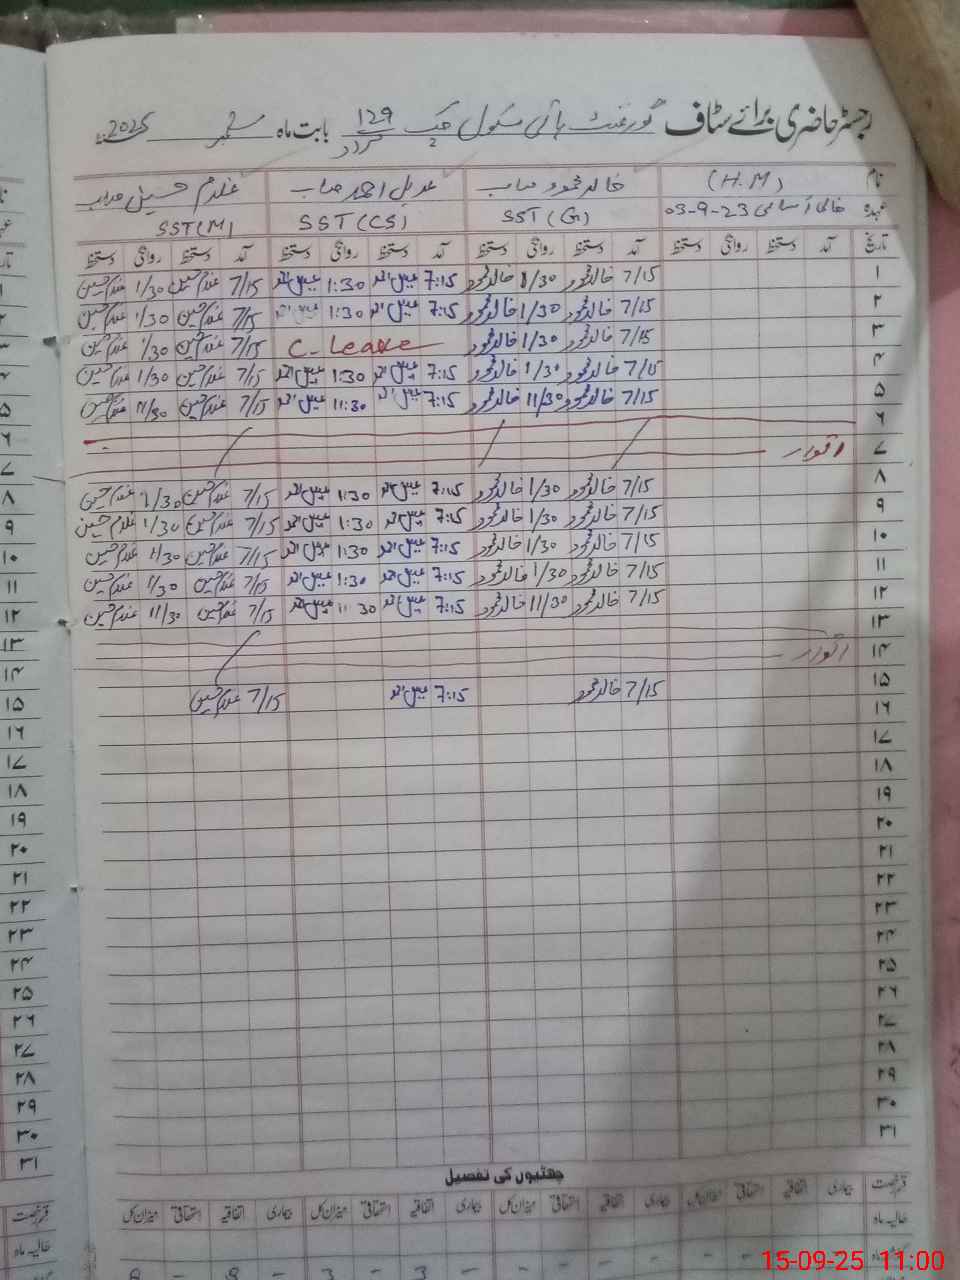 رجسٹر حاضری برائے سٹاف گورنمنٹ ہائی سکول چک 129 بابت ماہ ستمبر 2025
نام (H.M) خالد محمود صاحب عدیل احمد صاحب غلام حسین صاحب
عہدہ خالی آسامی 03-9-23 SST (G) SST (CS) SST (M)
تاریخ آمد دستخط روانگی دستخط آمد دستخط روانگی دستخط آمد دستخط روانگی دستخط آمد دستخط روانگی دستخط
۱ 7/15 خالد محمود 1/30 خالد محمود 7:15 عدیل احمد 1:30 عدیل احمد 7/15 غلام حسین 1/30 غلام حسین
۲ 7/15 خالد محمود 1/30 خالد محمود 7:15 عدیل احمد 1:30 عدیل احمد 7/15 غلام حسین 1/30 غلام حسین
۳ 7/15 خالد محمود 1/30 خالد محمود C-Leave 7/15 غلام حسین 1/30 غلام حسین
۴ 7/15 خالد محمود 1/30 خالد محمود 7:15 عدیل احمد 1:30 عدیل احمد 7/15 غلام حسین 1/30 غلام حسین
۵ 7/15 خالد محمود 11/30 خالد محمود 7:15 عدیل احمد 11:30 عدیل احمد 7/15 غلام حسین 11/30 غلام حسین
۶
۷ اتوار
۸ 7/15 خالد محمود 1/30 خالد محمود 7:15 عدیل احمد 1:30 عدیل احمد 7/15 غلام حسین 1/30 غلام حسین
۹ 7/15 خالد محمود 1/30 خالد محمود 7:15 عدیل احمد 1:30 عدیل احمد 7/15 غلام حسین 1/30 غلام حسین
۱۰ 7/15 خالد محمود 1/30 خالد محمود 7:15 عدیل احمد 1:30 عدیل احمد 7/15 غلام حسین 1/30 غلام حسین
۱۱ 7/15 خالد محمود 1/30 خالد محمود 7:15 عدیل احمد 1:30 عدیل احمد 7/15 غلام حسین 1/30 غلام حسین
۱۲ 7/15 خالد محمود 11/30 خالد محمود 7:15 عدیل احمد 11 30 عدیل احمد 7/15 غلام حسین 11/30 غلام حسین
۱۳
۱۴ اتوار
۱۵ 7/15 خالد محمود 7:15 عدیل احمد 7/15 غلام حسین
۱۶
۱۷
۱۸
۱۹
۲۰
۲۱
۲۲
۲۳
۲۴
۲۵
۲۶
۲۷
۲۸
۲۹
۳۰
۳۱
چھٹیوں کی تفصیل
قسم رخصت بیماری اتفاقیہ استحقاقی میزان کل بیماری اتفاقیہ استحقاقی میزان کل بیماری اتفاقیہ استحقاقی میزان کل بیماری اتفاقیہ استحقاقی میزان کل
حالیہ ماہ
15-09-25 11:00